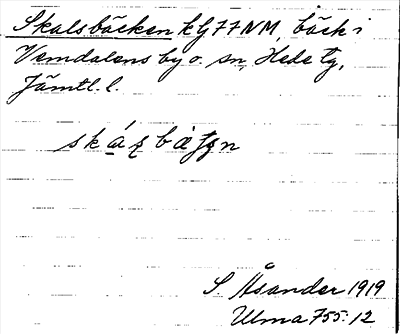 Skalsbäcken kG77NM, bäck i
Vemdalens by o. sn, Hede tg,
Jämtl. l.
S. Åsander 1919
Ulma 755:12